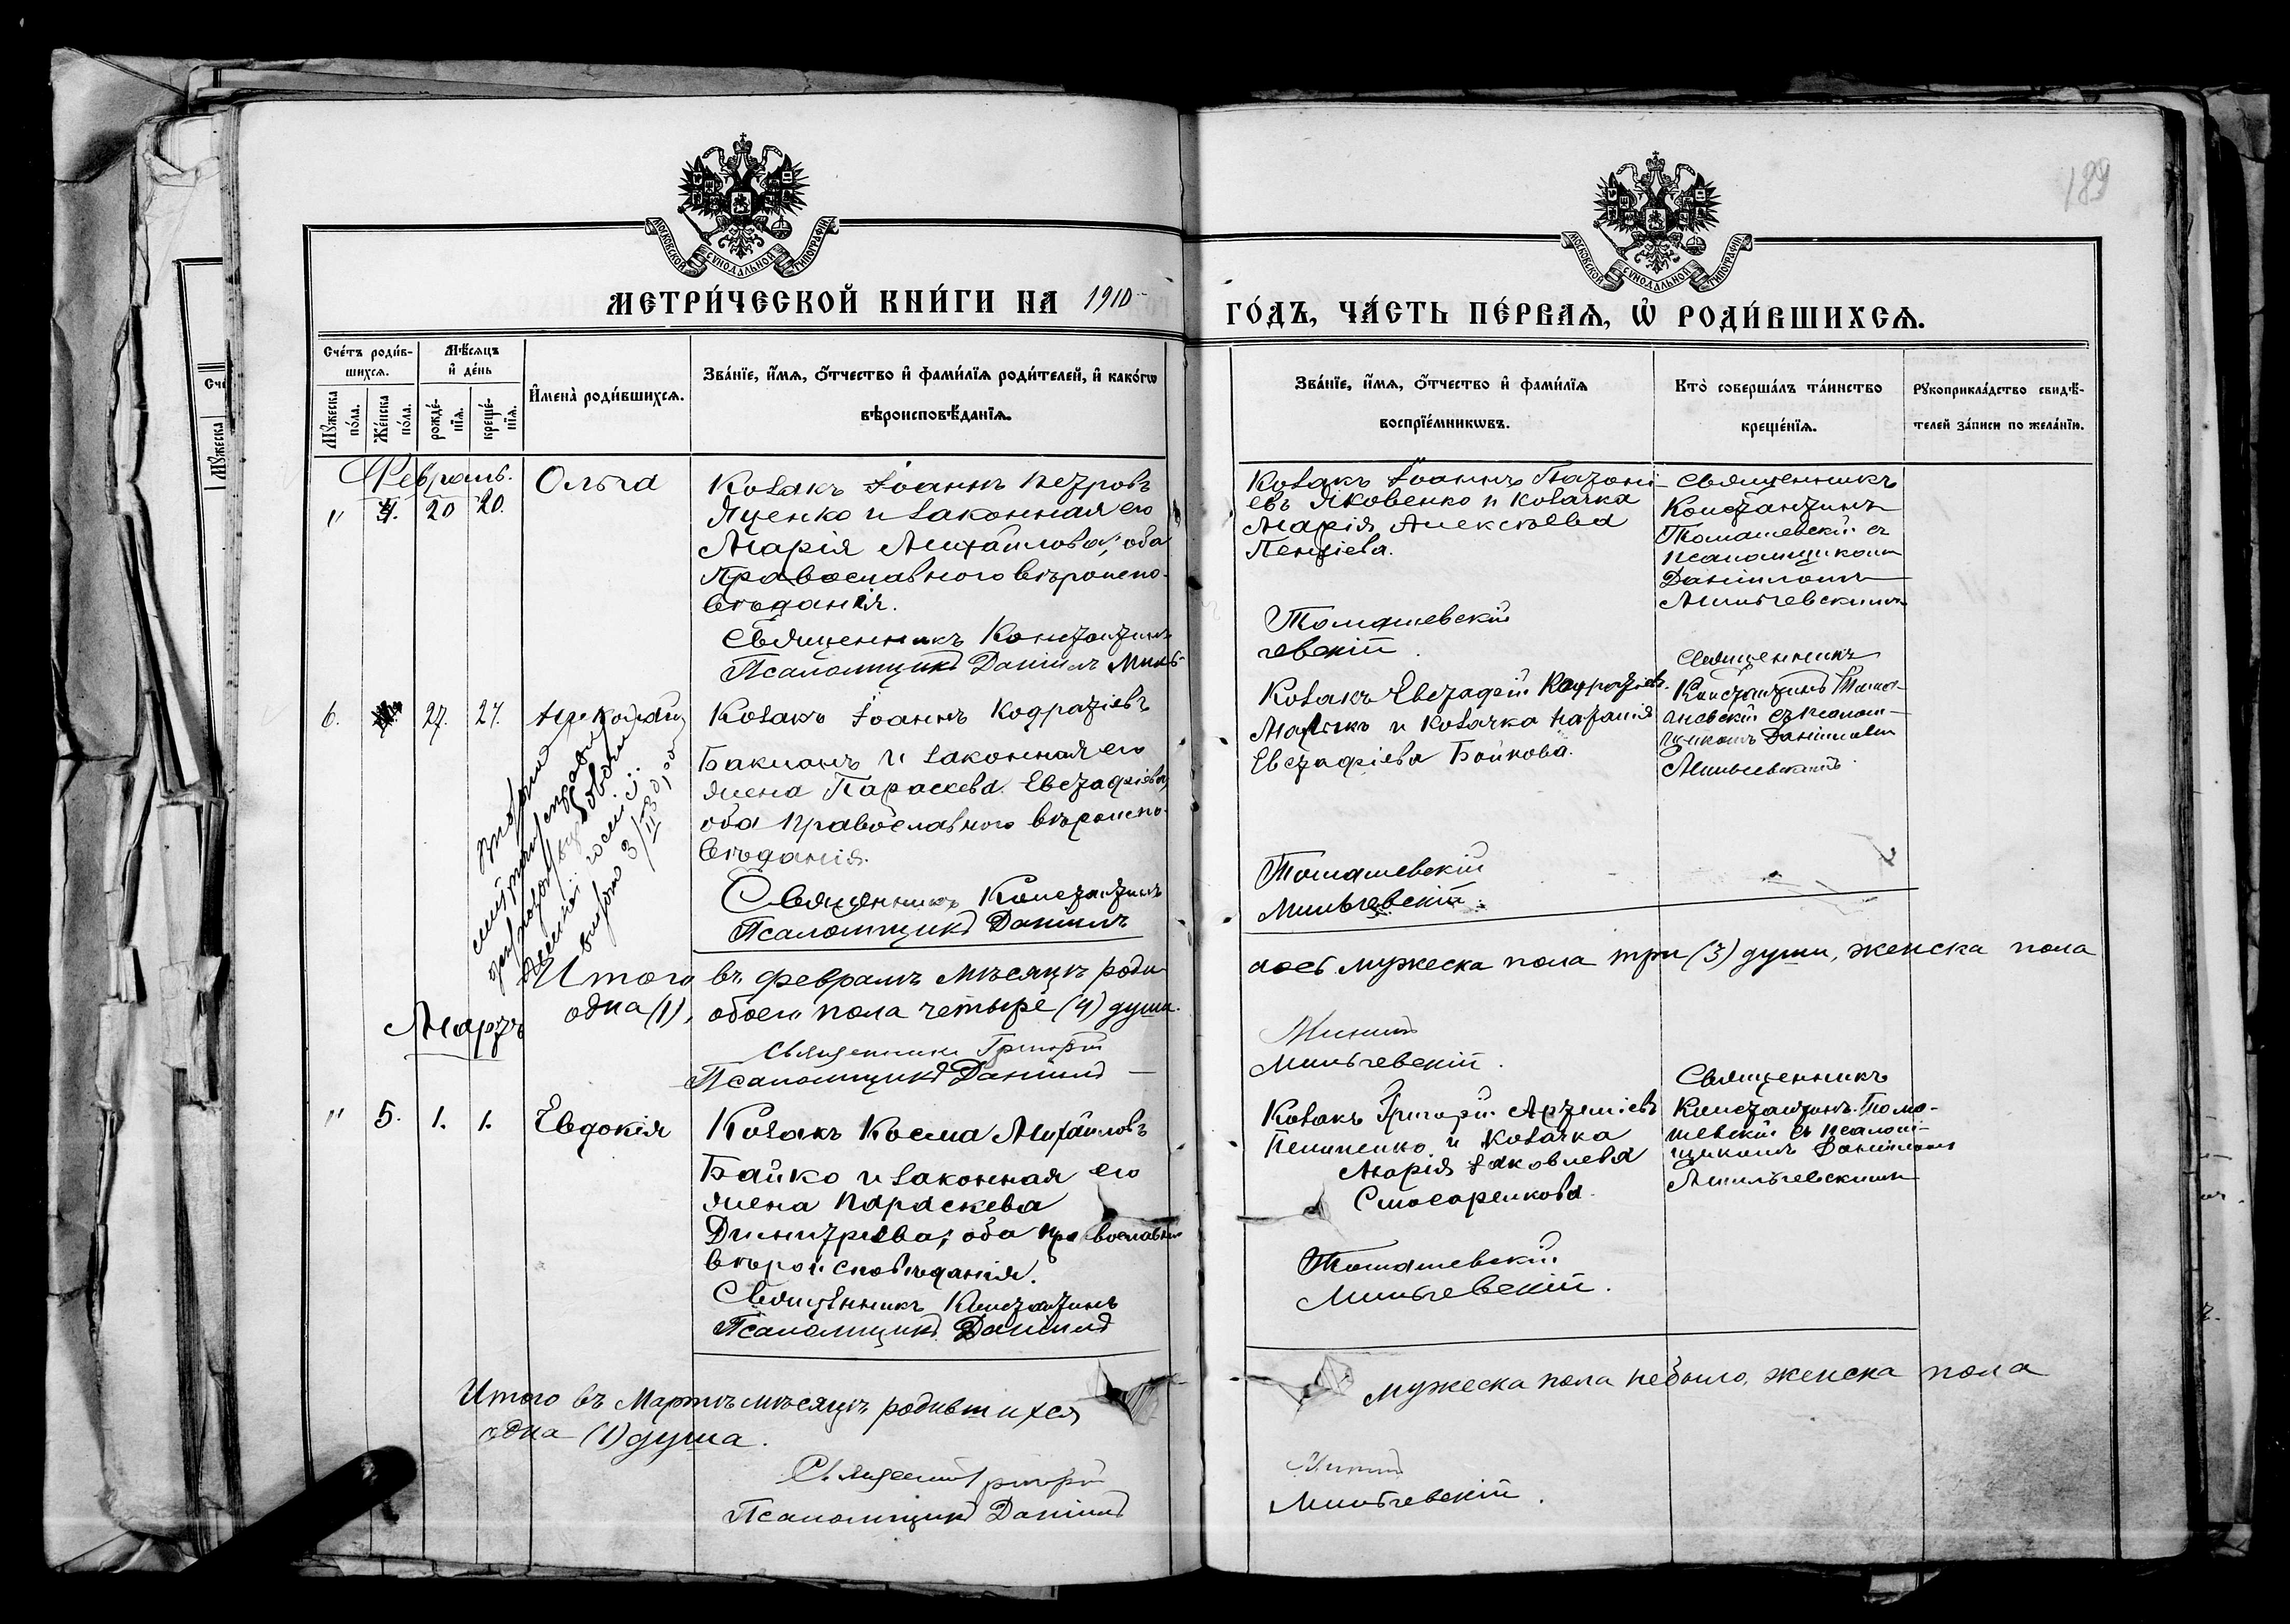 189
МОСКОВСКОЙ СУНОДАЛЬНОЙ ТИПОГРАФІИ
МОСКОВСКОЙ СУНОДАЛЬНОЙ ТИПОГРАФІИ
МЕТРИ́ЧЕСКОЙ КНИ́ГИ НА 1910
ГО́ДЪ, ЧА́СТЬ ПЕ́РВАѦ, Ѡ҆ РОДИ́ВШИХСѦ.
Сче́тъ роди́в-
шихсѧ.
Мѣ́сѧцъ
и҆ де́нь
Мꙋ́жеска
по́ла.
Же́нска
по́ла.
рожде́-
нїѧ.
креще́-
нїѧ.
И҆мена̀ роди́вшихсѧ.
Зва́нїе, и҆́мѧ, ѻ҆́тчество и҆ фами́лїѧ роди́телей, и҆ како́гѡ
вѣроисповѣ́данїѧ.
Зва́нїе, и҆́мѧ, ѻ҆́тчество и҆ фами́лїѧ
воспрїе́мникѡвъ.
Кто̀ соверша́лъ та́инство
креще́нїѧ.
Рꙋкоприкла́дство свидѣ́-
телей за́писи по жела́нїю.
Февраль.
" 4. 20 20.
Ольга
Козакъ Іоаннъ Петровъ
Яценко и законная его
Марія Михайлова, оба
Православного вѣроиспо-
вѣданія.
Священникъ Константинъ
Псаломщикъ Даніилъ Миль-
Козакъ Іоаннъ
евъ Яковенко и козачка
Марія Алексѣева
Томашевскій
чевскій
Священникъ
Константинъ
Томашевскій съ
псаломщикомъ
Даніиломъ
Мильчевскимъ
6. 27. 27.
Николай
Козакъ Іоаннъ Кодратіевъ
Бакланъ и законная его
жена Параскева Евстафіева,
оба Православного вѣроиспо-
вѣданія.
Священникъ Константинъ
Псаломщикъ Даніилъ
Козакъ Кодратіевъ
и козачка Наталія
Евстафіева Бойкова.
Томашевскій
Мильчевскій
Священникъ
Константинъ Тома-
шевскій съ псалом-
щикомъ Даніиломъ
Мильчевскимъ
Итого въ февралѣ мѣсяцѣ роди
лось мужеска пола три (3) души, женска пола
одна (1), обоего пола четыре (4) души.
Священникъ Григорій
Псаломщикъ Даніилъ
Мильчевскій
Мартъ
" 5. 1. 1.
Евдокія
Козакъ Косма Михайловъ
Байко и законная его
жена Параскева
Димитріева, оба православн
вѣроисповѣданія.
Священникъ Константинъ
Псаломщикъ Даніилъ
Козакъ Григорій Артеміевъ
и козачка
Марія Іаковлева
Томашевскій
Мильчевскій.
Священникъ
Константинъ Тома-
шевскій съ псалом-
щикомъ Даніиломъ
Мильчевскимъ
Итого въ Мартѣ мѣсяцѣ родившихся
мужеска пола небыло, женска пола
одна (1) душа.
Псаломщикъ Даніилъ
Мильчевскій.